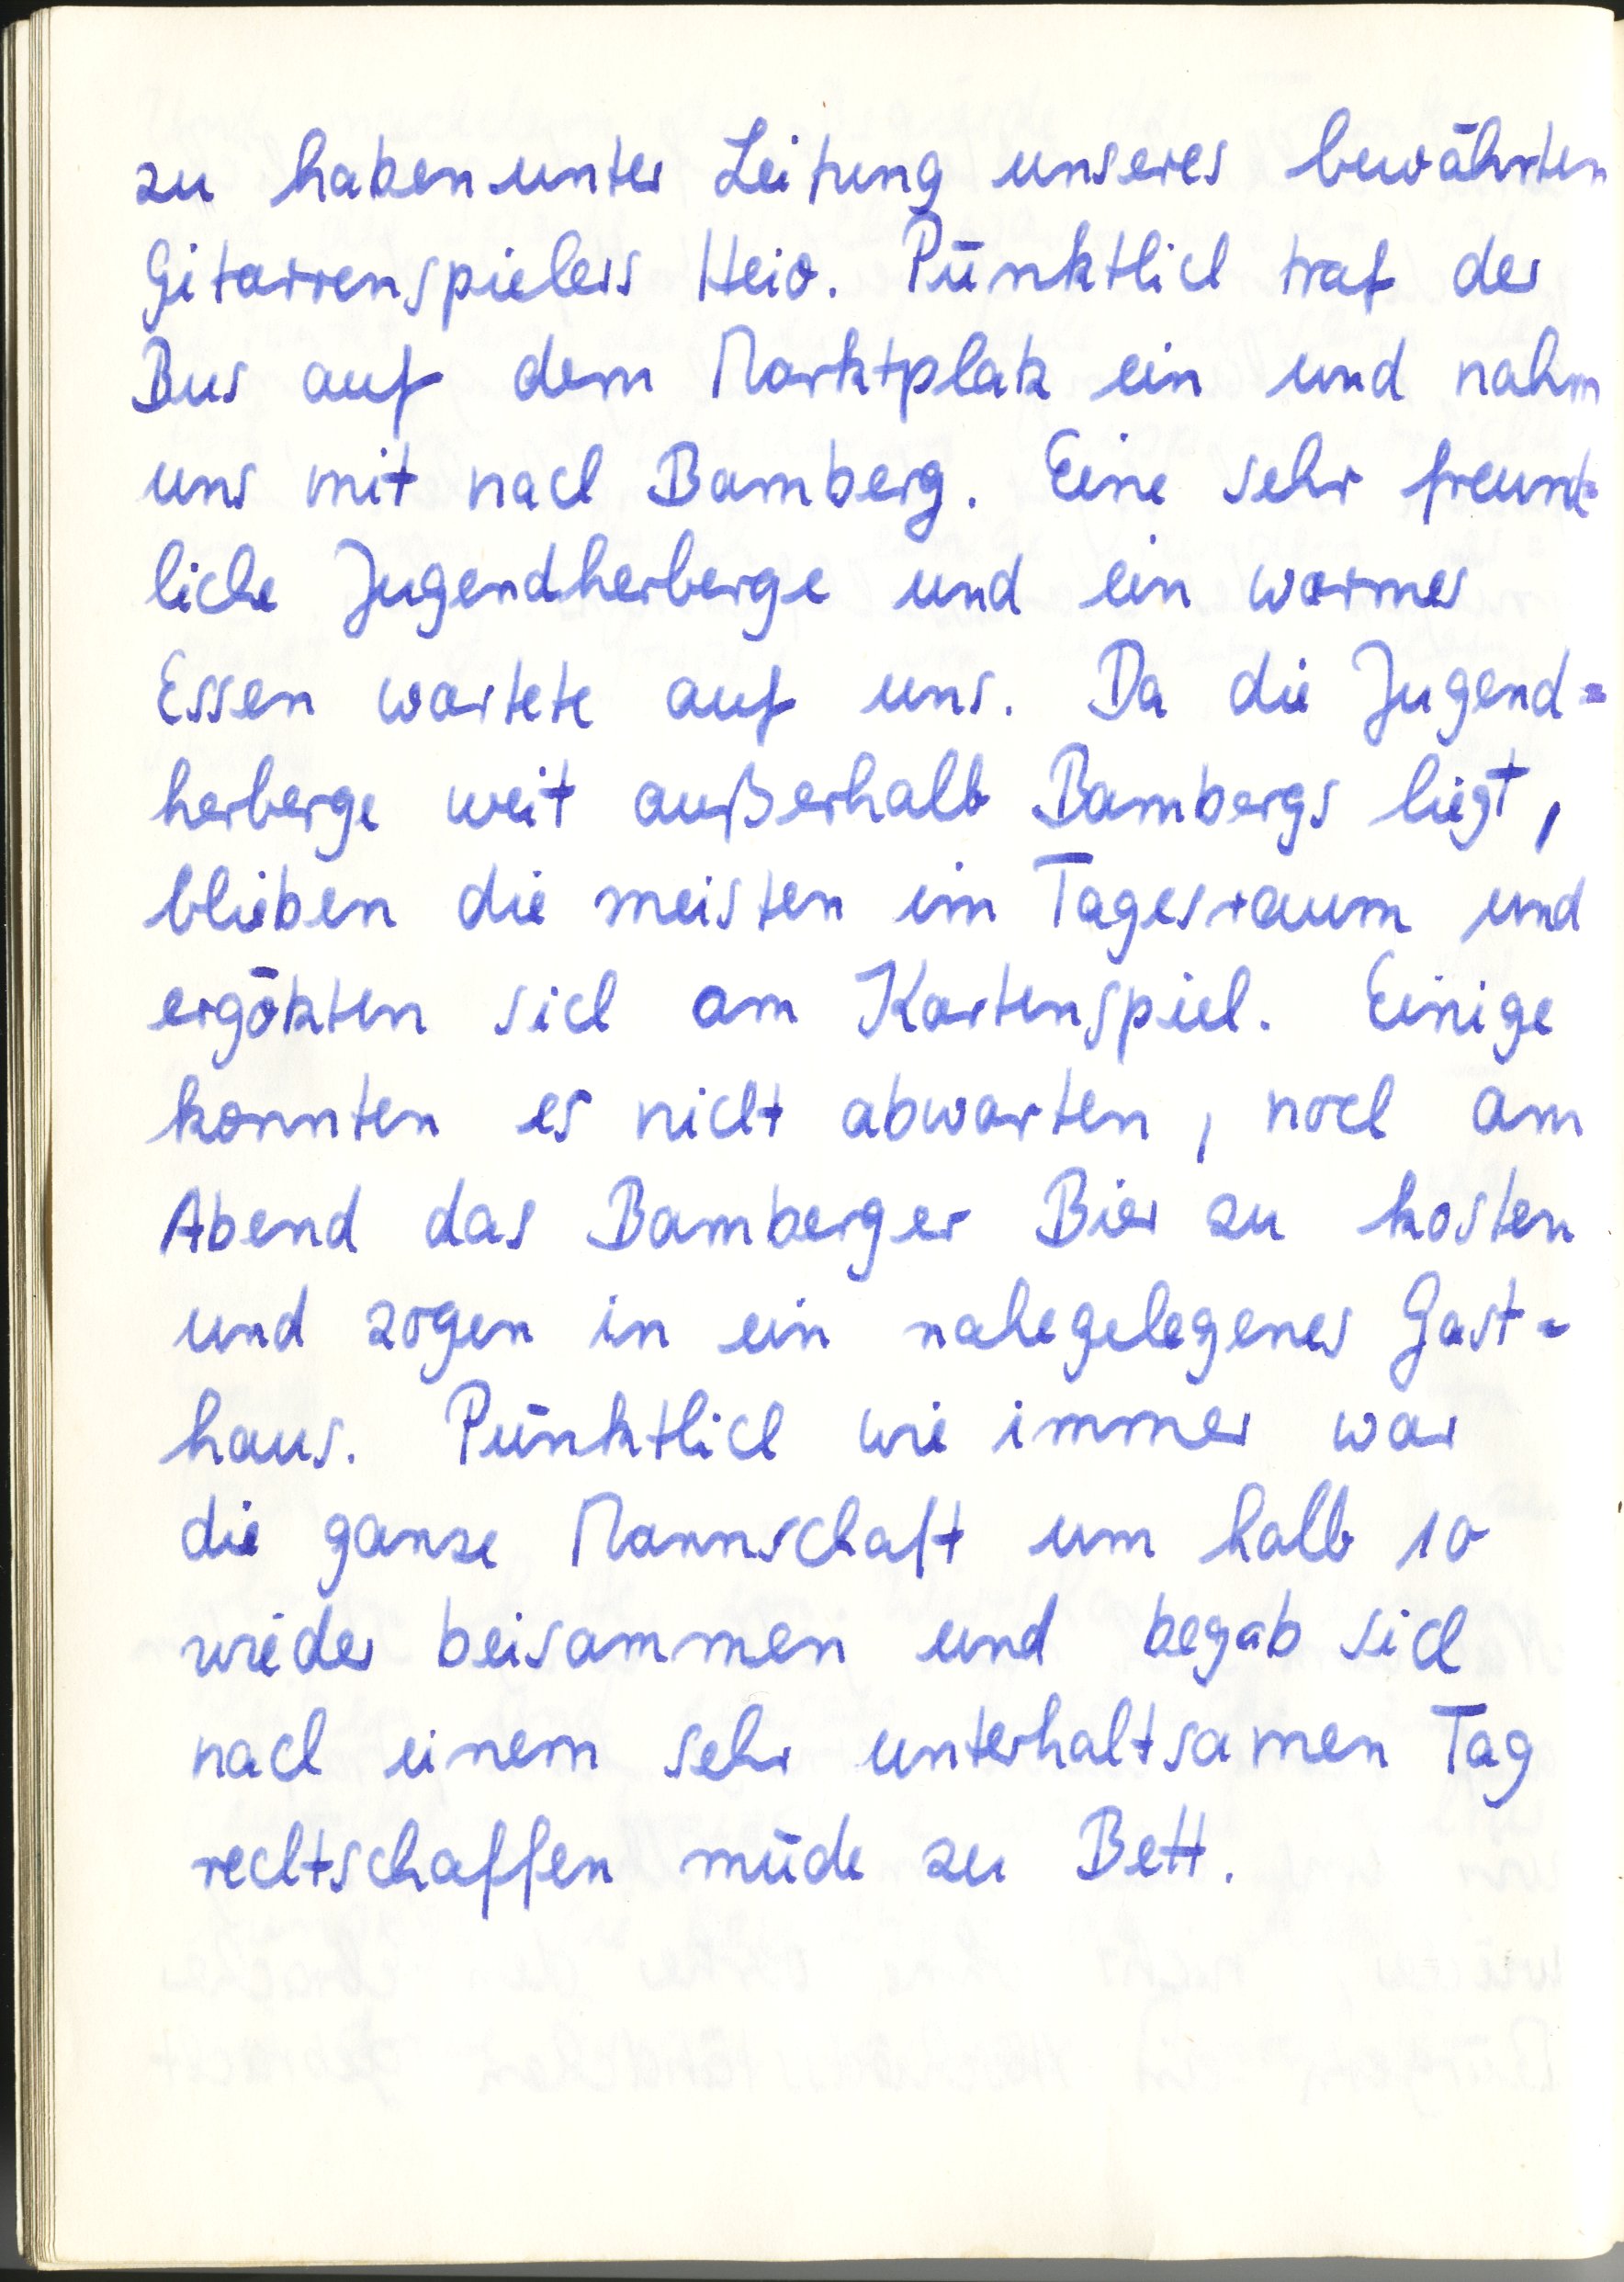 zu haben unter Leitung unseres bewährten
Gitarrenspielers Heio. Pünktlich traf der
Bus auf dem Marktplatz ein und nahm
uns mit nach Bamberg. Eine sehr freund-
liche Jugendherberge und ein warmes
Essen wartete auf uns. Da die Jugend=
herberge weit außerhalb Bambergs liegt,
blieben die meisten im Tagesraum und
ergötzten sich am Kartenspiel. Einige
konnten es nicht abwarten, noch am
Abend das Bamberger Bier zu kosten
und zogen in ein nahegelegenes Gast=
haus. Pünktlich wie immer war
die ganze Mannschaft um halb 10
wieder beisammen und begab sich
nach einem sehr unterhaltsamen Tag
rechtschaffen müde zu Bett.